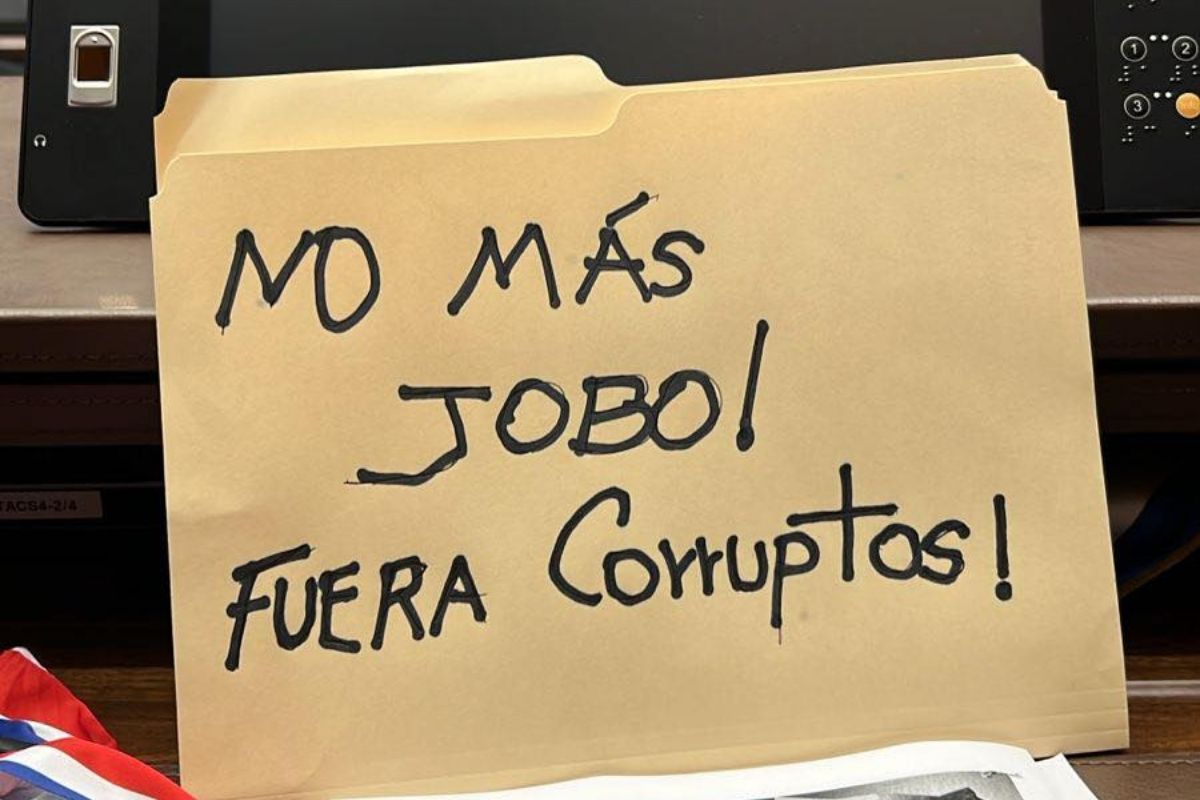 1 2
3
NO MÁS
JOBO!
TACS4-2/4
FUERA Corruptos!